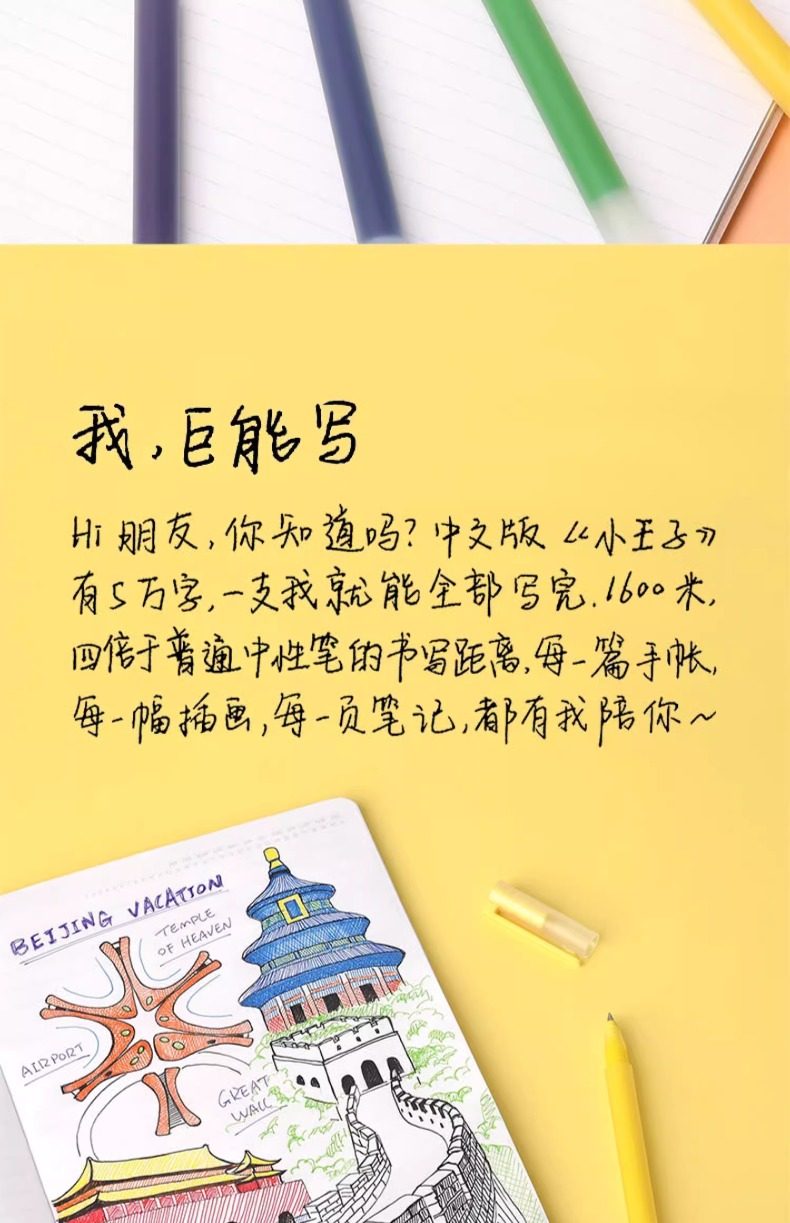 我,巨能写
Hi 朋友,你知道吗?中文版《小王子》
有5万字,一支我就能全部写完.1600米,
四倍于普通中性笔的书写距离,每一篇手帐,
每一幅插画,每一页笔记,都有我陪你~
BEIJING VACATION
TEMPLE
OF HEAVEN
AIRPORT
GREAT
WALL